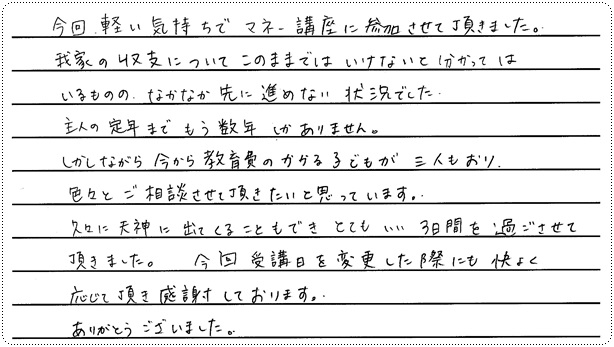 今回、軽い気持ちで マネー講座に参加させて頂きました。
我家の収支について このままでは いけないと分かっては
いるものの、なかなか先に進めない 状況でした。
主人の定年まで もう数年 しかありません。
しかしながら 今から教育費のかかる子どもが 三人もおり、
色々と ご相談させて頂きたいと思っています。
久々に天神に出てくることもでき とても いい 3日間を過ごさせて
頂きました。 今回 受講日を変更した際にも快よく
応じて頂き感謝しております。
ありがとうございました。